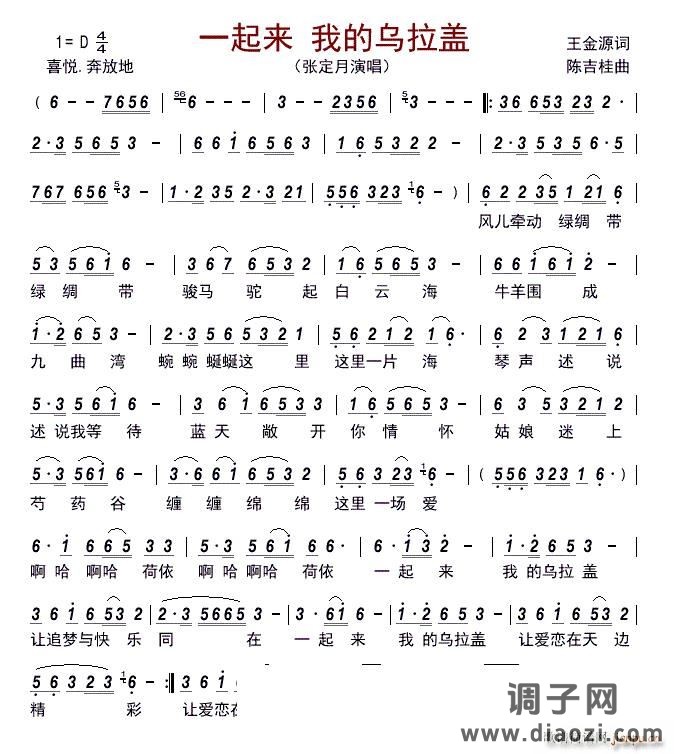 一起来 我的乌拉盖
1= D 4/4
王金源词
喜悦.奔放地
（张定月演唱）
陈吉桂曲
( 6 - - 7 6 5 6 | 56 6 - - - | 3 - - 2 3 5 6 | 5 3 - - - |: 3 6 6 5 3 2 3 2 ·
2 · 3 5 6 5 3 - | 6 6 1 6 5 6 3 | 1 6 5 3 2 2 - | 2 · 3 5 3 5 6 5 ·
7 6 7 6 5 6 5 3 - | 1 · 2 3 5 2 · 3 2 1 | 5 5 6 3 2 3 1 6 - ) | 6 2 2 3 5 1 2 1 6
风儿牵动 绿绸 带
5 3 5 6 1 6 - | 3 6 7 6 5 3 2 | 1 6 5 5 6 5 6 - | 6 6 1 6 1 2 -
绿 绸 带 骏马 驼 起 白 云 海 牛羊围 成
1 · 2 6 5 3 - | 2 · 3 5 6 5 3 2 1 | 5 6 2 1 2 1 2 6 · | 6 2 3 5 3 5
九 曲 湾 蜿 蜿 蜒蜒这 里 这里一片 海 琴 声 述 说
5 · 3 5 6 1 6 - | 3 6 1 6 5 3 - | 1 6 5 6 5 3 - | 6 5 3 2 1 2
述 说我等 待 蓝 天 敞 开 你 情 怀 姑 娘 迷 上
5 · 3 5 6 1 6 - | 2 · 3 5 6 5 3 2 - | 5 6 3 2 3 1 6 - | ( 5 5 6 3 2 3 1 6 · )
芍 药 谷 缠 缠 绵 绵 这里 一场 爱
6 · 1 6 6 5 3 - | 5 · 3 5 6 1 6 - | 6 · 1 3 2 - | 1 · 2 6 5 3 -
啊 哈 啊哈 荷依 啊 哈 啊哈 荷依 一 起 来 我 的 乌拉 盖
3 6 1 6 5 3 2 | 2 · 3 5 6 6 5 3 - | 3 · 6 1 6 - | 1 · 2 6 5 3 - | 3 6 1 6 5 3 2
让追梦与快 乐 同 在 一 起 来 我 的乌拉盖 让爱恋在天 边
5 6 3 2 3 1 6 - :| 3 6 1
精 彩 让爱恋在
调子网
www.diaozi.com